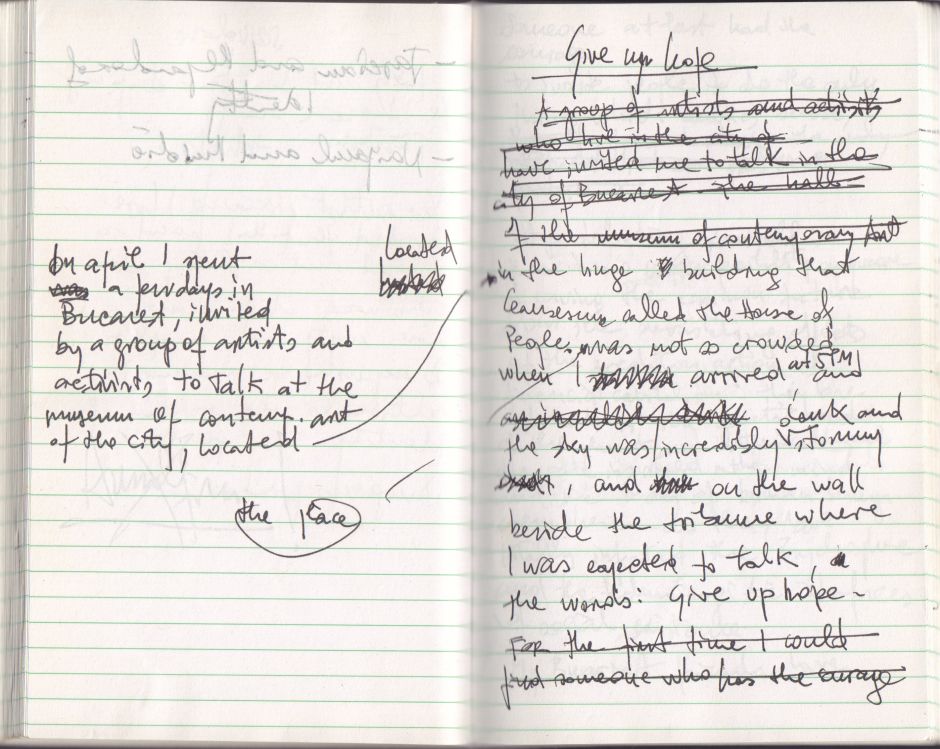 On april I spent
a few days in
Bucarest, invited
by a group of artists and
activists, to talk at the
museum of contemp. art
of the city, located
Located
the place
Give up hope
A group of artists and activists
who live in the city of
have invited me to talk in the
city of Bucarest the hall
of the museum of contemporary Art
in the huge building that
Ceausescu called the House of
People. was not so crowded
when I arrived at 5 PM and
dark and
the sky was incredibly stormy
, and on the wall
beside the tribune where
I was expected to talk,
the words: Give up hope -
For the first time I could
find someone who has the courage